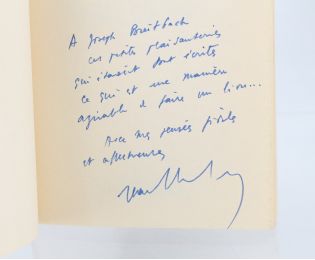 A Joseph Breitbach
ces petites plaisanteries
qui étaient dont écrites
ce qui est une manière
agréable de faire un lion...
Avec mes pensées fidèles
et affectueuses